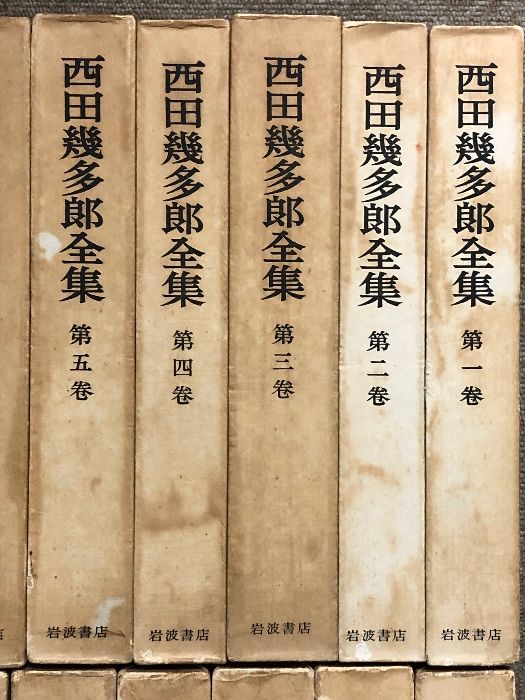 西田幾多郎全集 第一卷
岩波書店
西田幾多郎全集 第二卷
岩波書店
西田幾多郎全集 第三卷
岩波書店
西田幾多郎全集 第四卷
岩波書店
西田幾多郎全集 第五卷
岩波書店
店